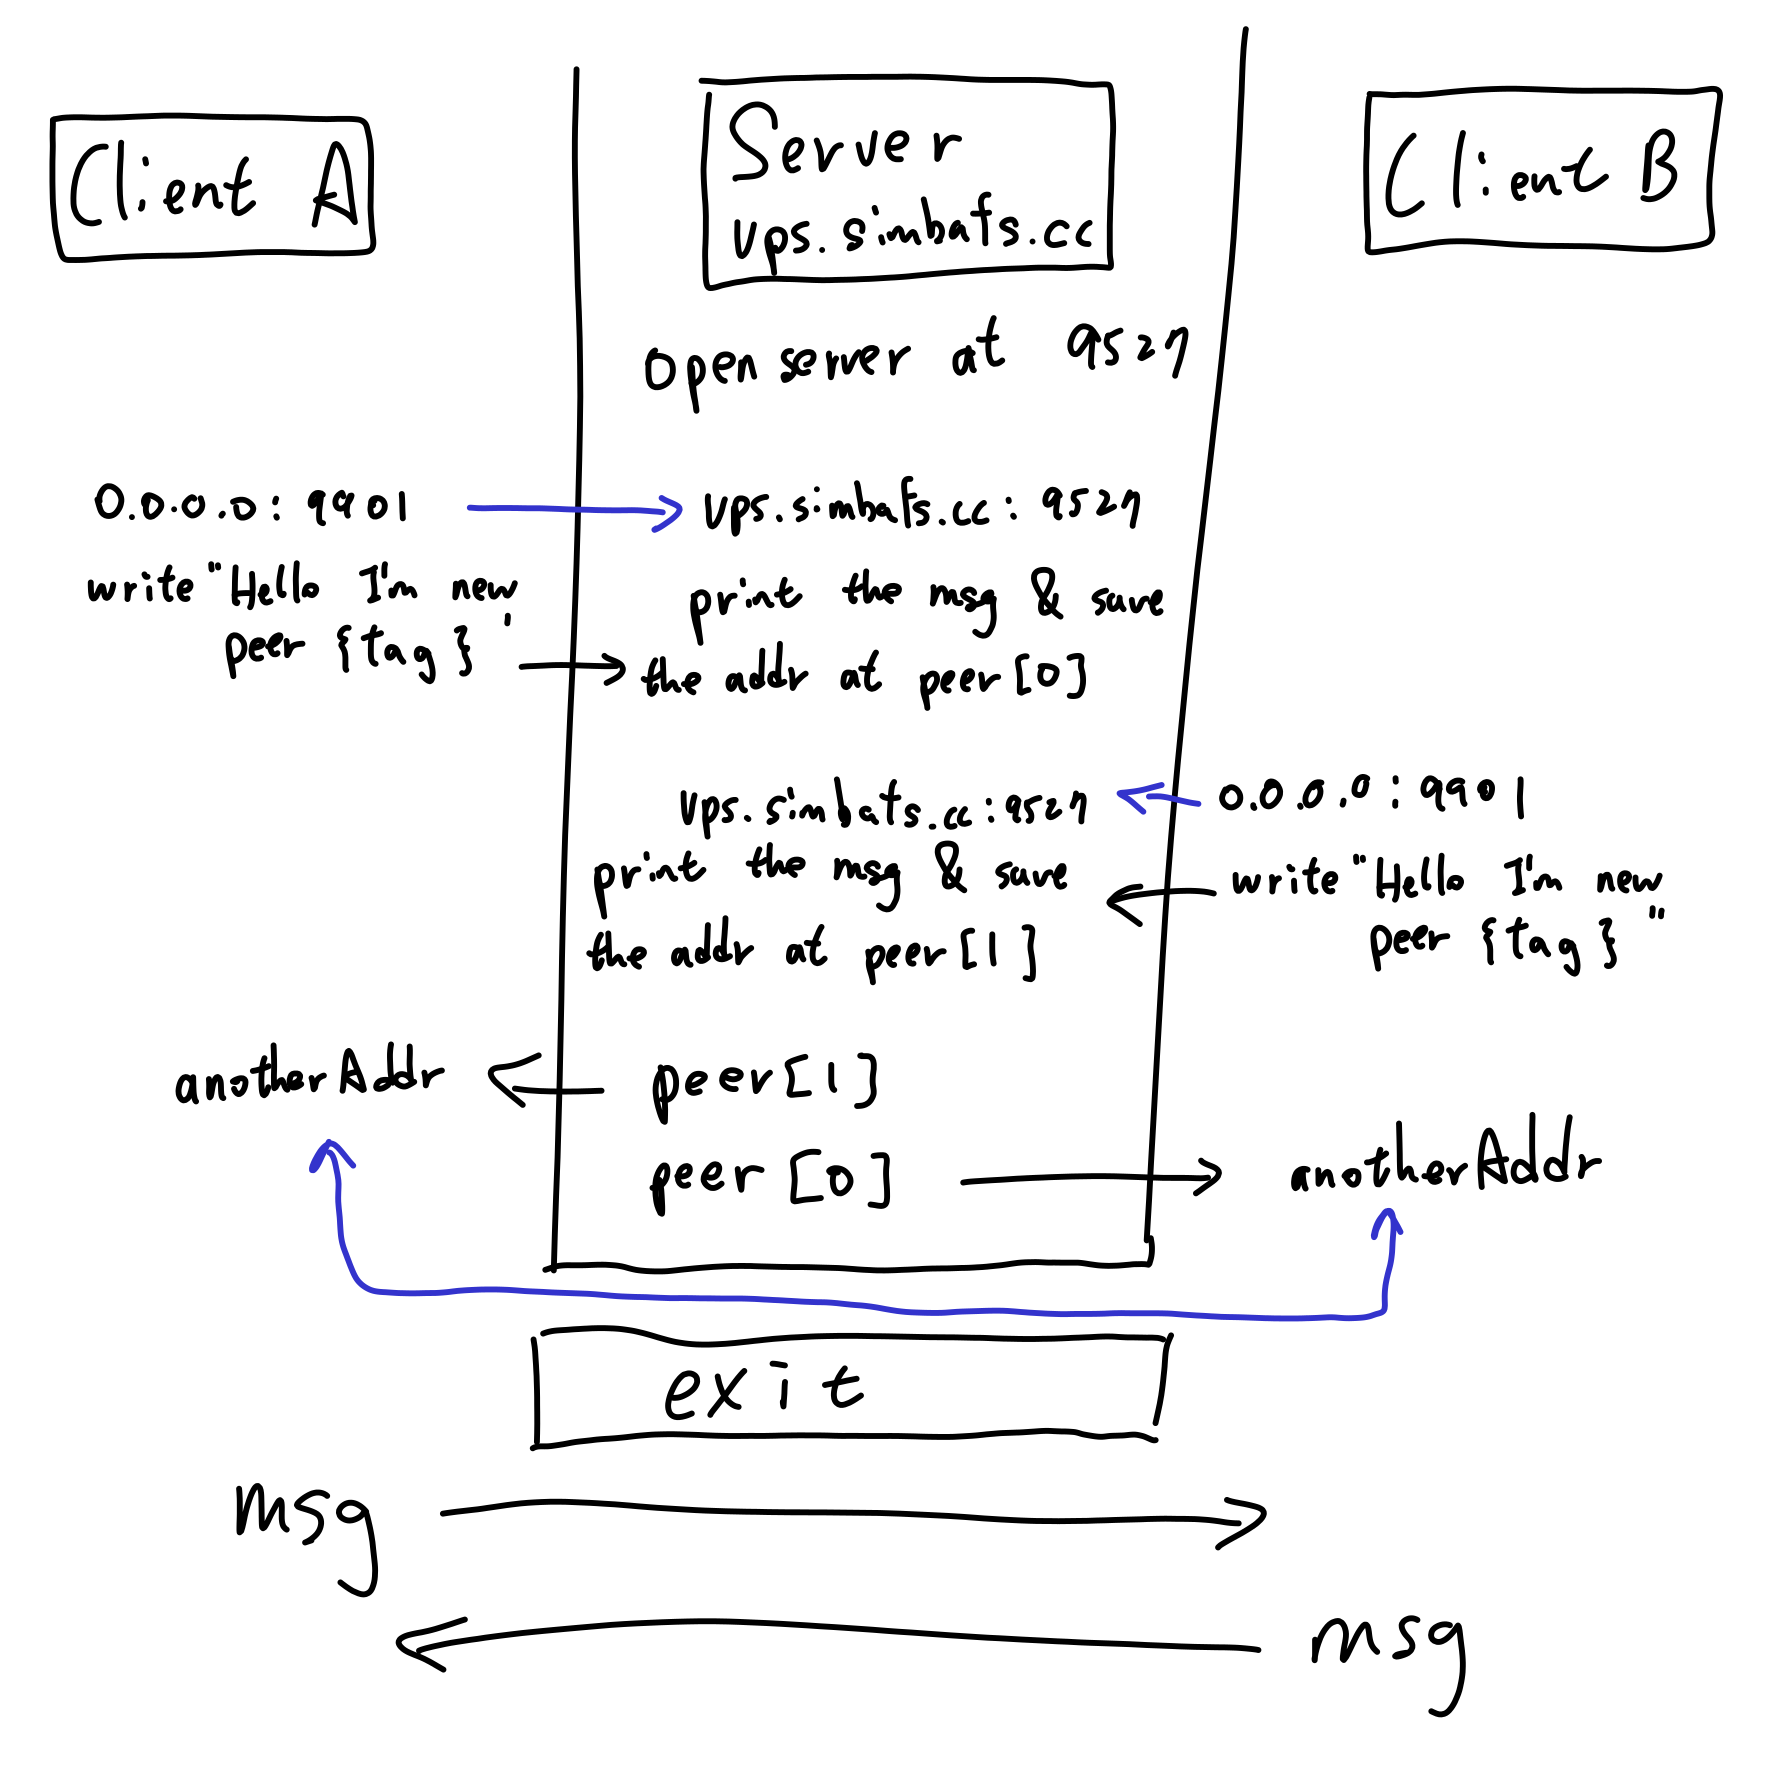 Client A
Server
vps.simbafs.cc
Client B
open server at 9527
0.0.0.0:9901
vps.simbafs.cc:9527
write "Hello I'm new
peer {tag}"
print the msg & save
the addr at peer[0]
vps.simbafs.cc:9527
0.0.0.0:9901
print the msg & save
the addr at peer[1]
write "Hello I'm new
peer {tag}"
anotherAddr
peer[1]
peer[0]
anotherAddr
exit
msg
msg